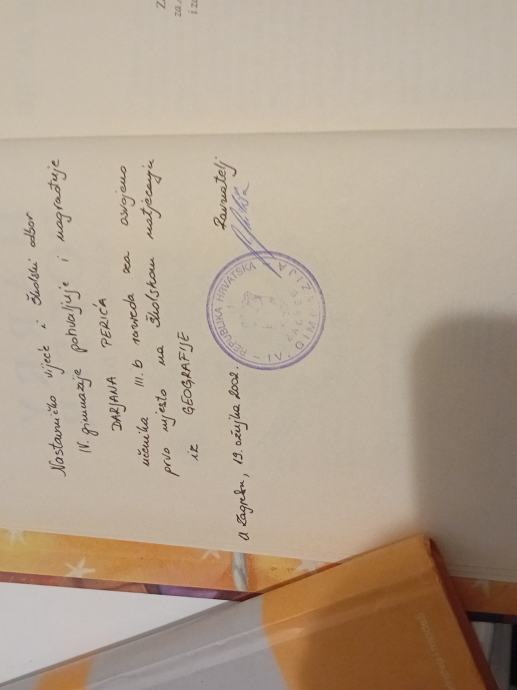 Nastavničko vijeće i školski odbor
IV. gimnazije pohvaljuje i nagrađuje
DARJANA PERIĆA
učenika III. b razreda za osvojeno
prvo mjesto na školskom natjecanju
iz GEOGRAFIJE
U Zagrebu, 19. ožujka 2002.
Ravnatelj
REPUBLIKA HRVATSKA
IV. GIMNAZIJA
ZAGREB